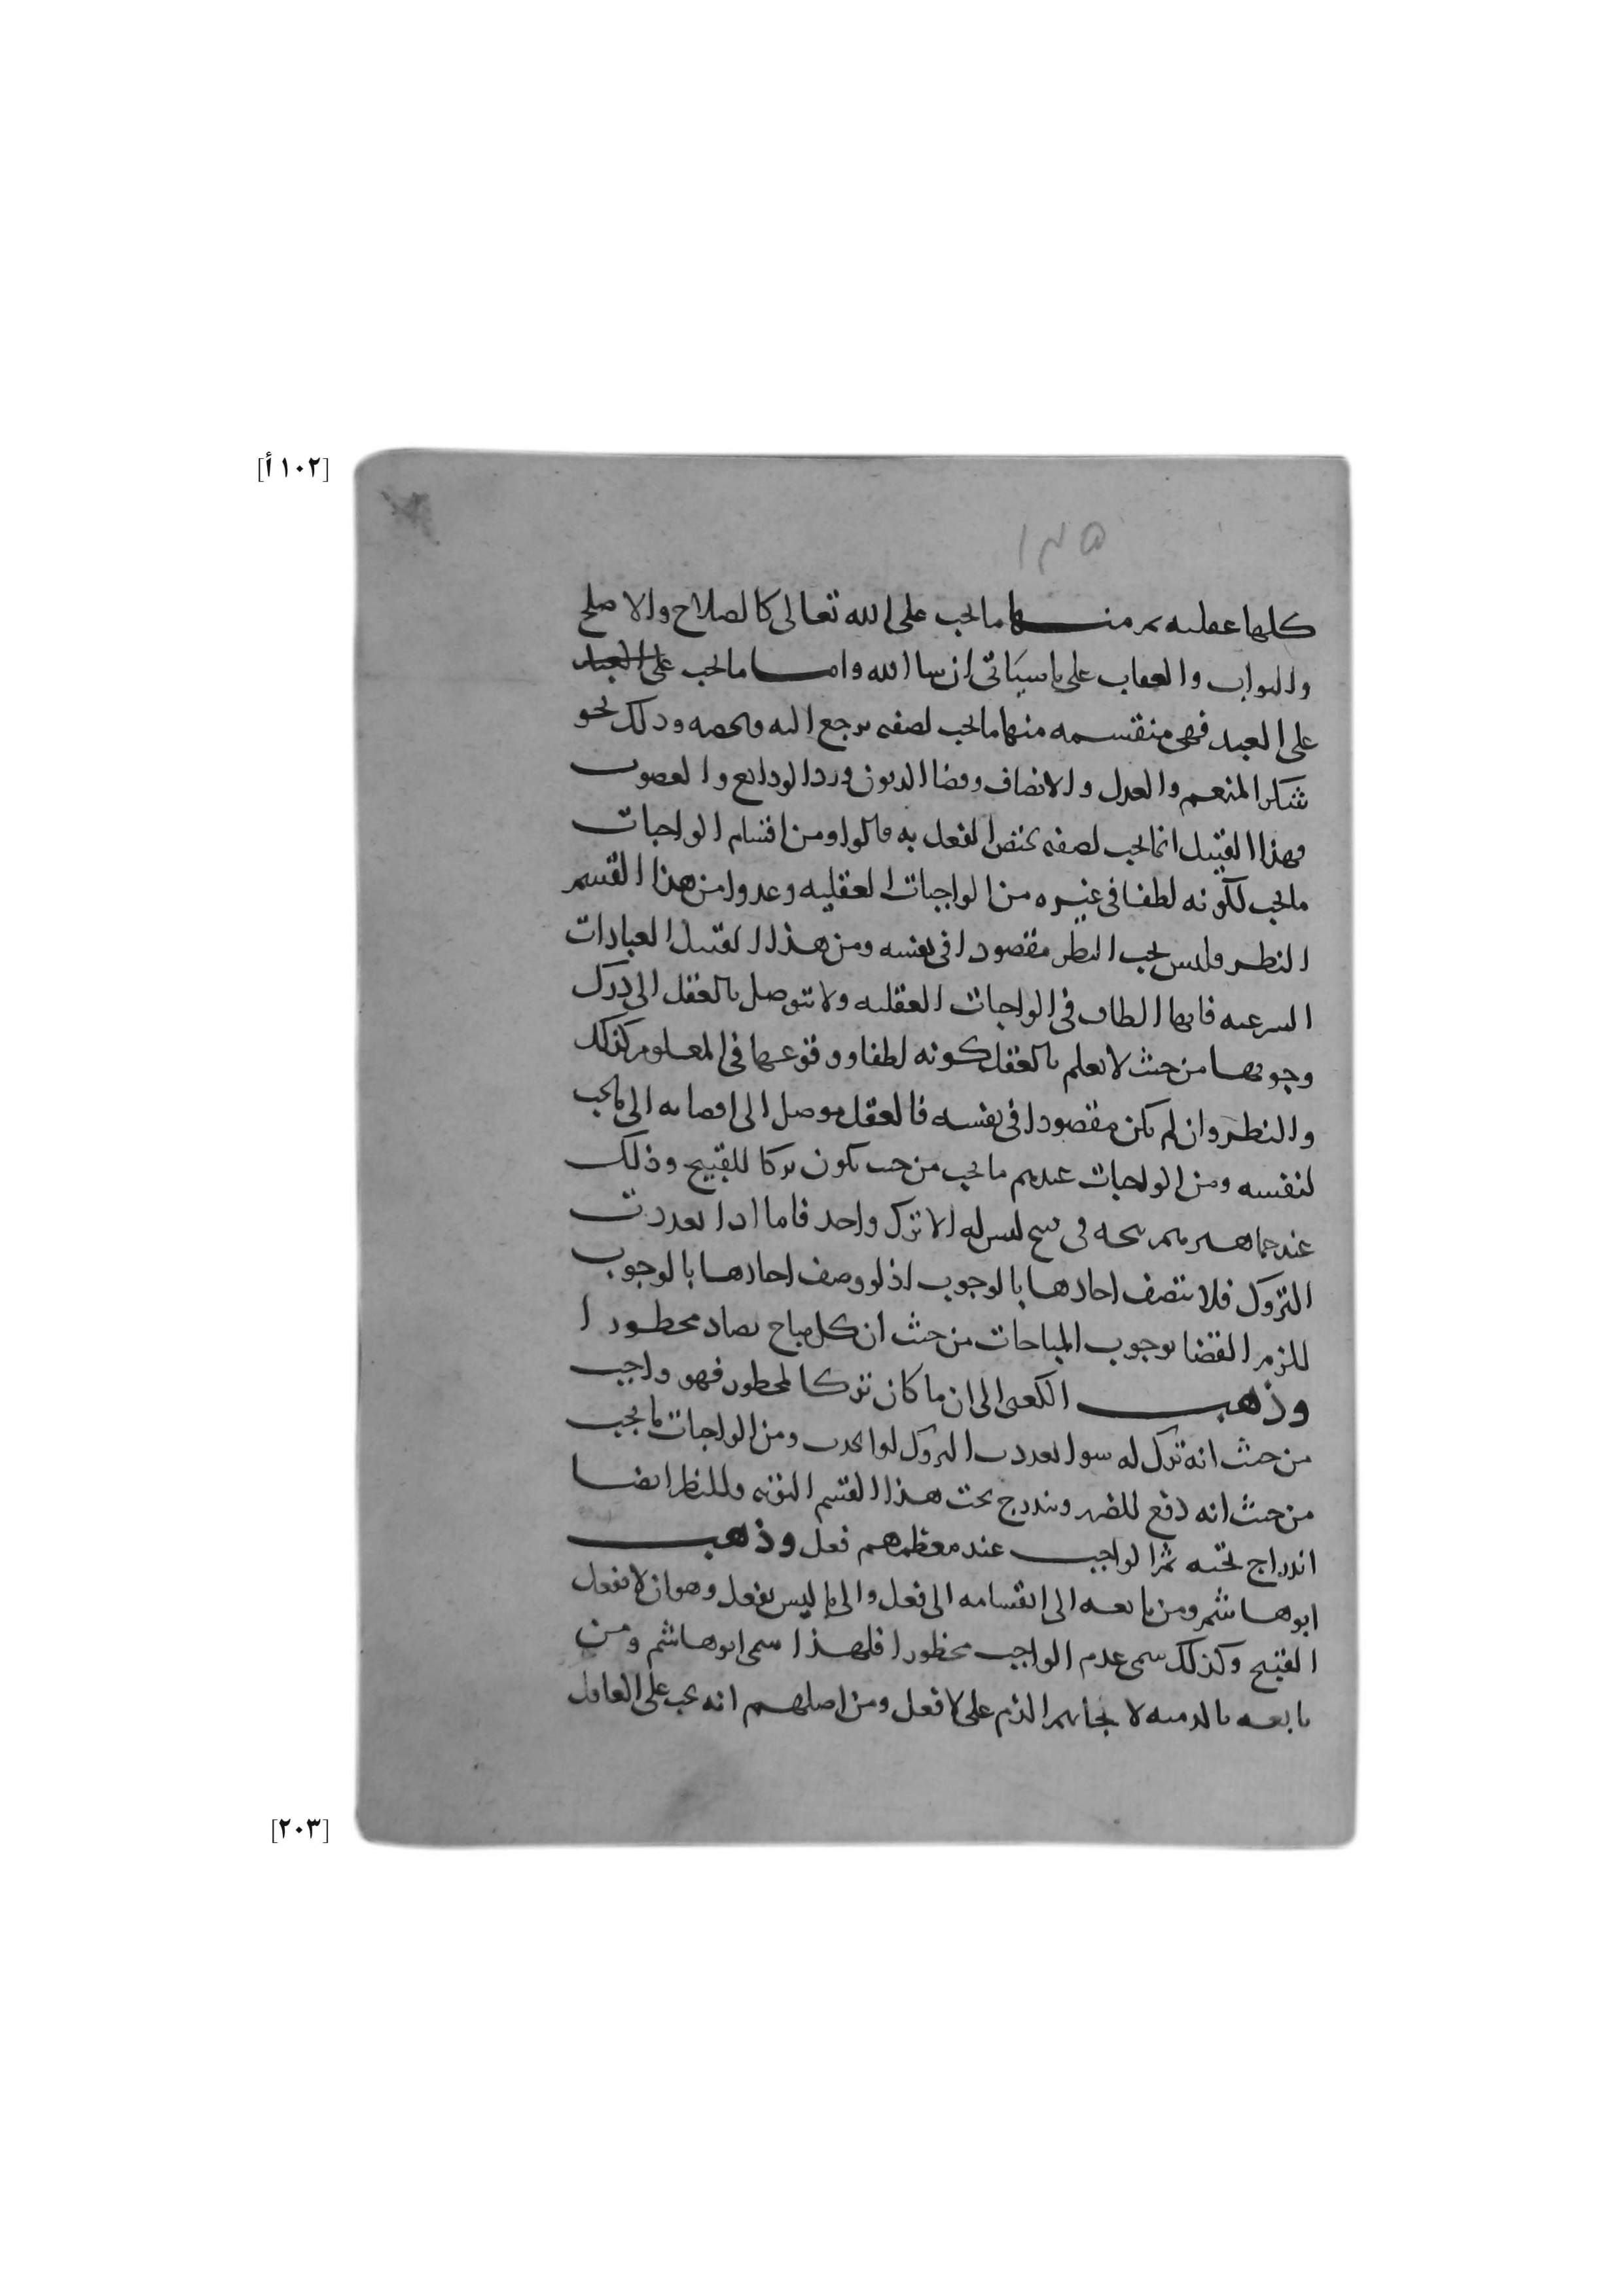 [١٠٢ أ]
١٣٥
كلها عقليه ثم منها ما يجب على الله تعالى كالصلاح والاصلح
والثواب والعقاب على ما سيأتى ان شا الله واما ما يجب على العبد
على العبد فهى منقسمه منها ما يجب لصفه ترجع اليه وتخصه وذلك نحو
شكر المنعم والعدل والانصاف وقضا الديون ورد الودايع والغصوب
فهذا القبيل انما يجب لصفه تختص الفعل به قالوا ومن اقسام الواجبات
ما يجب لكونه لطفا فى غيره من الواجبات العقليه وعدوا من هذا القسم
النظر وليس يجب النظر مقصودا فى نفسه ومن هذا القبيل العبادات
الشرعيه فانها الطاف فى الواجبات العقليه ولا يتوصل بالعقل الى درك
وجوبها من حيث لا يعلم بالعقل كونه لطفا ووقوعها فى المعلوم كذلك
والنظر وان لم يكن مقصودا فى نفسه فالعقل موصل الى افضايه الى ما يجب
لنفسه ومن الواجبات عندهم ما يجب من حيث يكون تركا للقبيح وذلك
عند جماهيرهم فى قبيح ليس له الا ترك واحد فاما اذا تعددت
التروك فلا تتصف احادها بالوجوب اذ لو وصف احادها بالوجوب
للزم القضا بوجوب المباحات من حيث ان كل مباح يضاد محظورا
وذهب الكعبى الى ان ما كان تركا لمحظور فهو واجب
من حيث انه ترك له سوا تعددت التروك او اتحدت ومن الواجبات ما يجب
من حيث انه دفع للضرر ويندرج تحت هذا القسم التوبه وللنظر ايضا
اندراج تحته ثم الواجب عند معظمهم فعل وذهب
ابو هاشم ومن تابعه الى انقسامه الى فعل والى ما ليس بفعل وهو ان لا يفعل
القبيح وكذلك سمى عدم الواجب محظورا فلهذا سمى ابو هاشم ومن
تابعه بالذميه لايجابهم الذم على لا فعل ومن اصلهم انه يجب على العاقل
[٢٠٣]